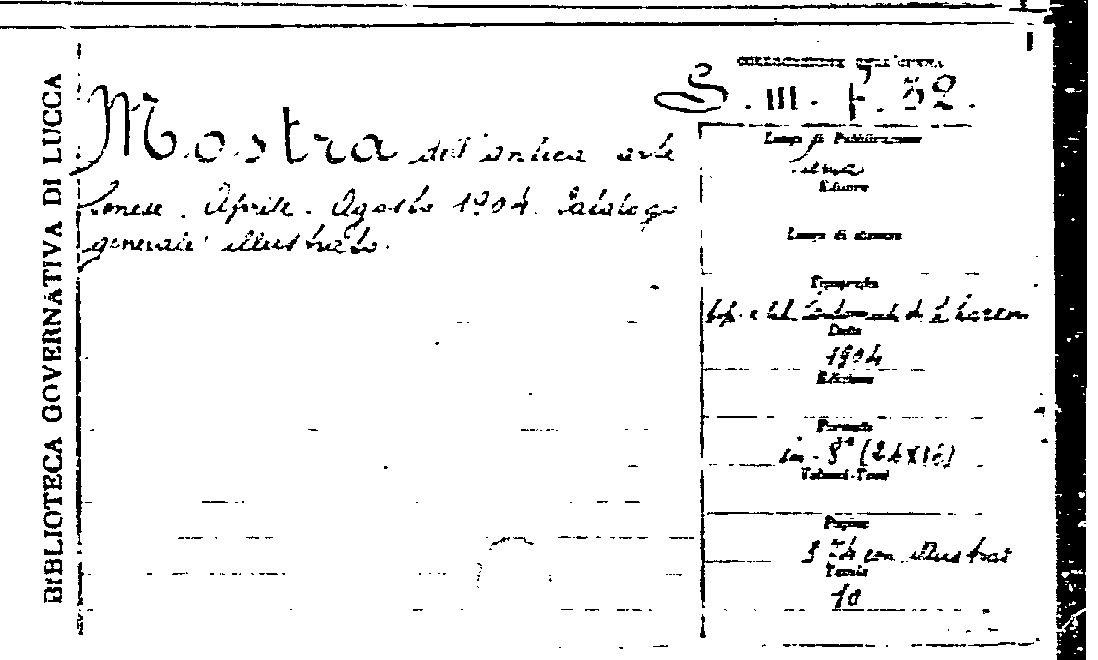 BIBLIOTECA GOVERNATIVA DI LUCCA
COLLOCAZIONE DELL'OPERA
S. III. F. 32.
Mostra dell'antica arte
senese. Aprile. Agosto 1904. Catalogo
generale illustrato.
Luogo di Pubblicazione
Siena
Editore
Luogo di stampa
Tipografia
tip. e lit. di L. Lazzeri
Data
1904
Edizione
Formato
in-8° (24X16)
Volumi-Tomi
Pagine
con illustraz
Tavole
10